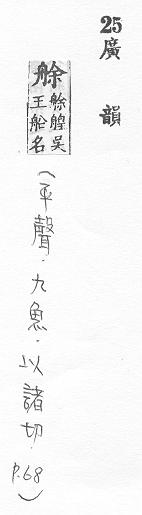 25廣韻
艅艅艎吳王船名
(平聲．九魚．以諸切．P.68)